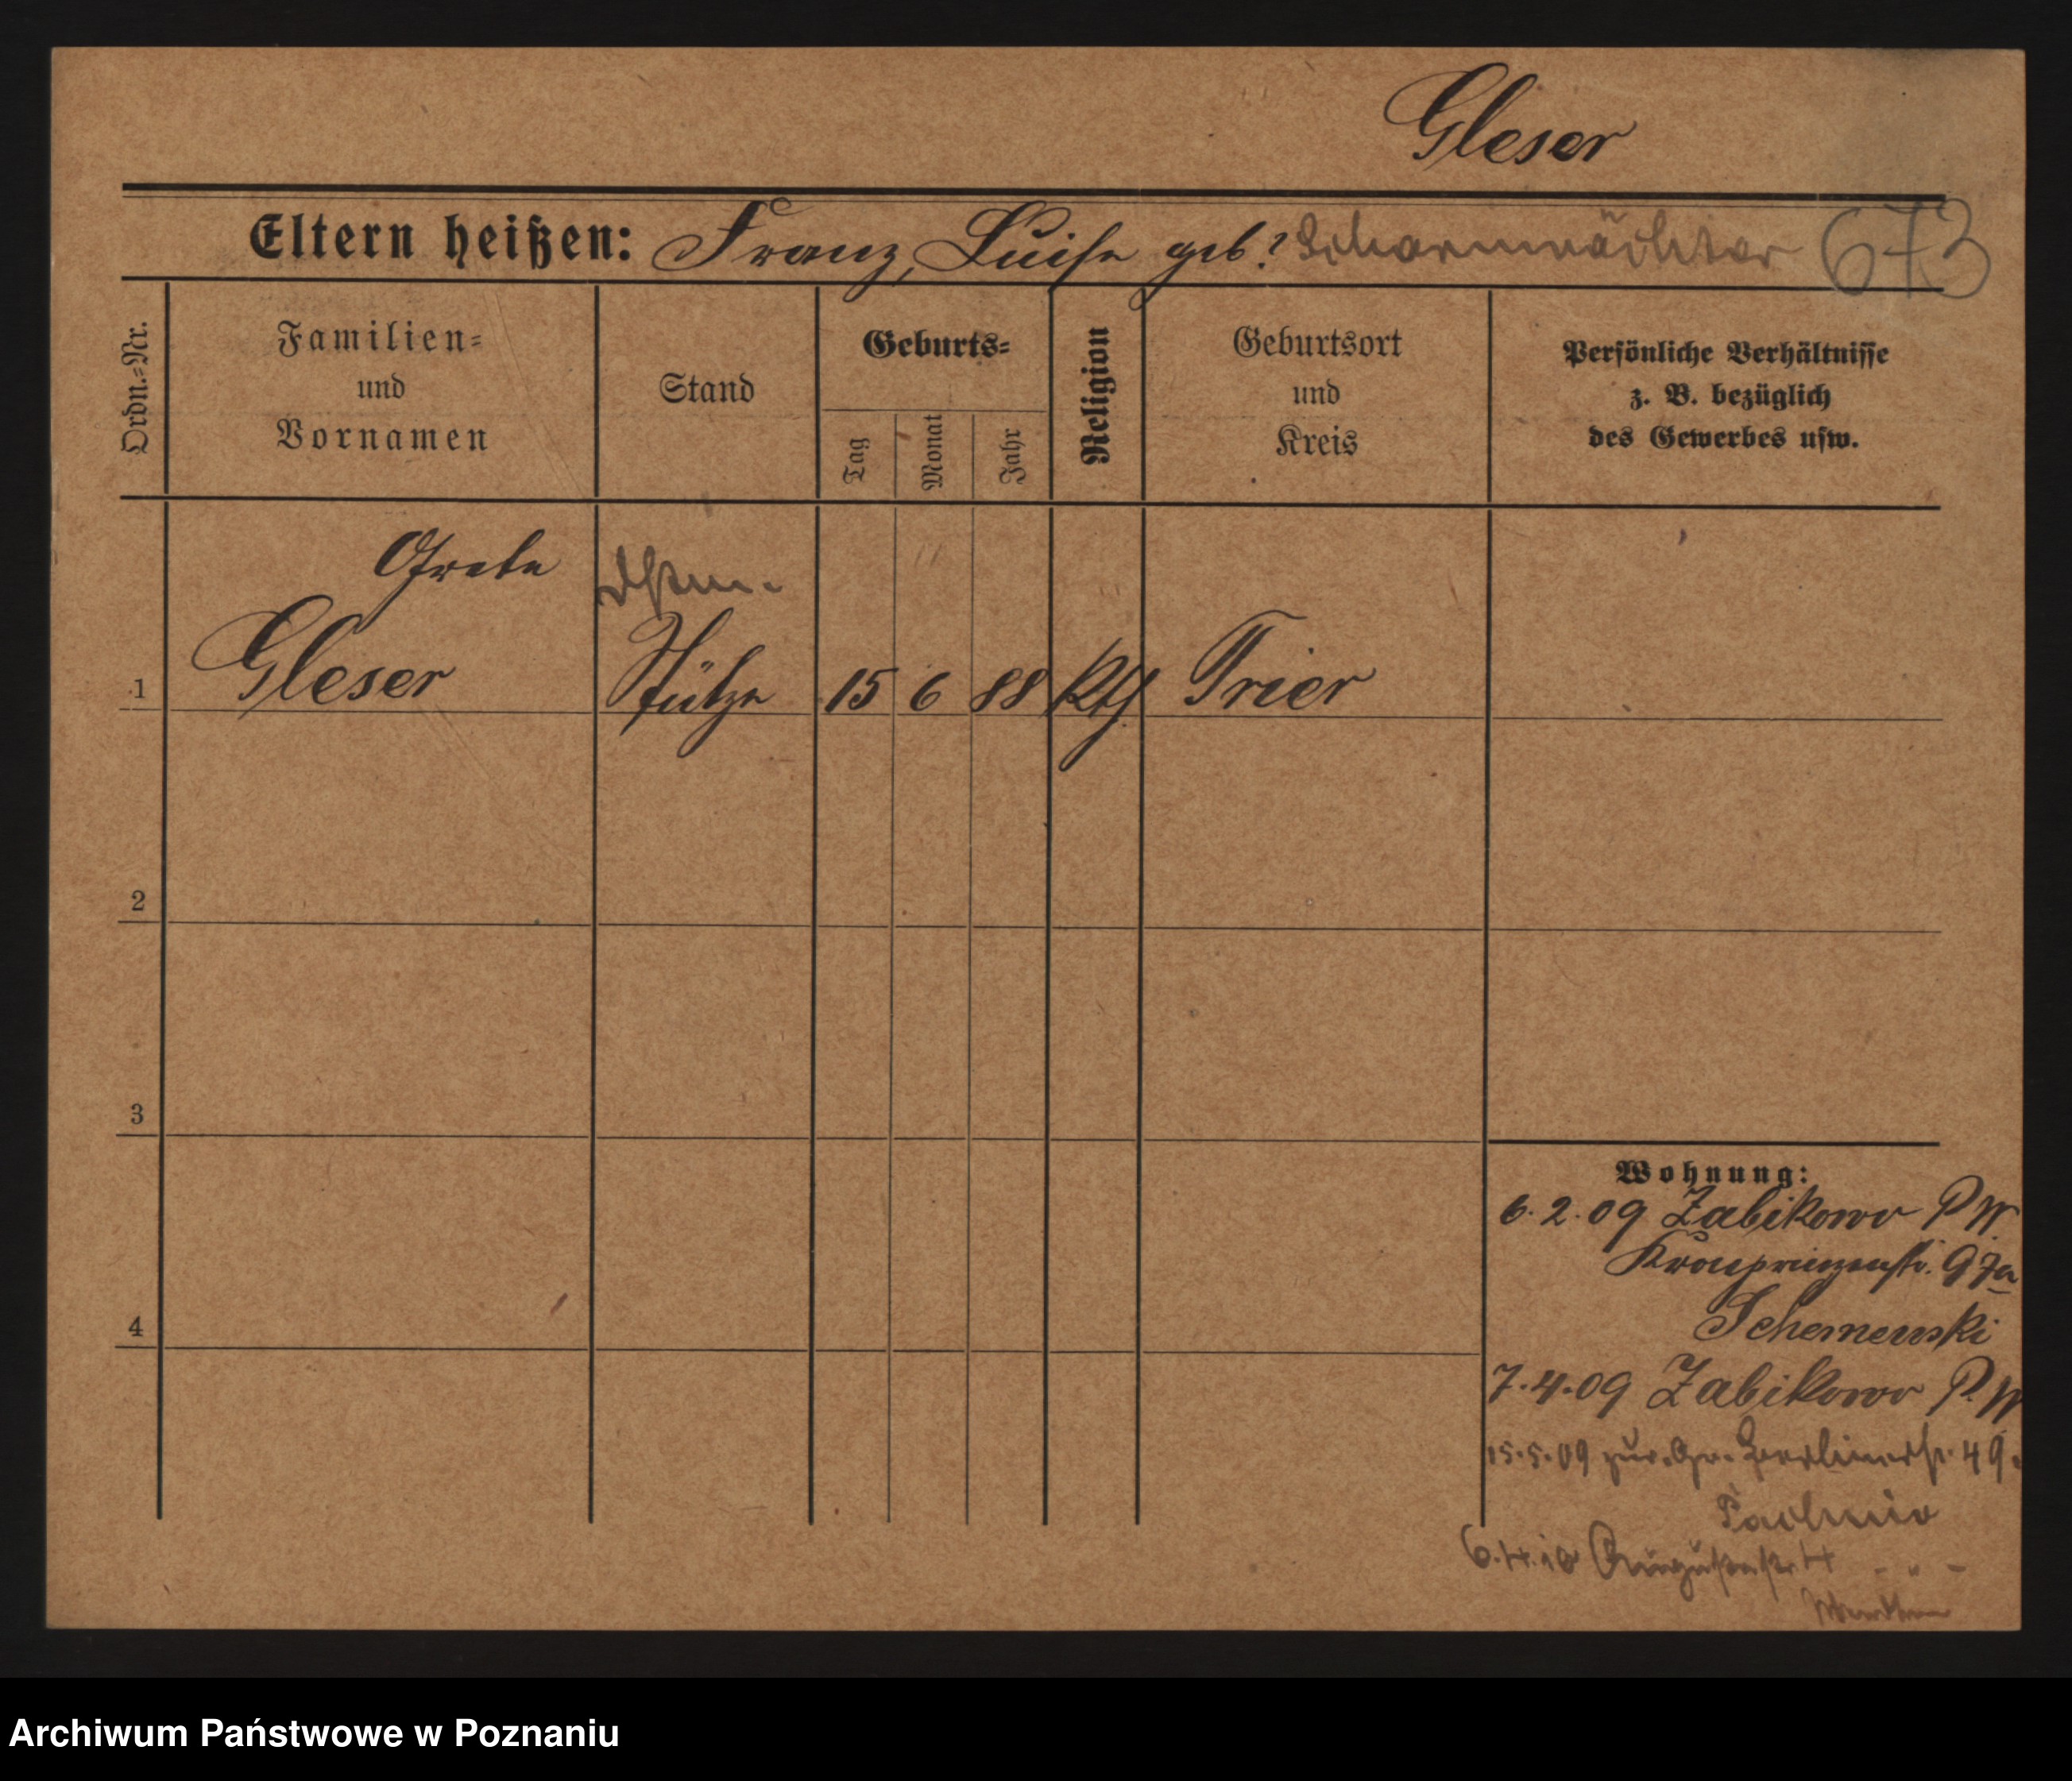 Gleser
Eltern heißen: Franz, Luise geb. ? 673
Ordn.-Nr.
Familien- und Vornamen
Stand
Geburts-
Tag
Monat
Jahr
Religion
Geburtsort und Kreis
Persönliche Verhältnisse
z. B. bezüglich
des Gewerbes usw.
Grete
1 Gleser Stütze 15 6 88 Kth Trier
2
3
4
Wohnung:
6.2.09 Zabikowo P.W.
Kronprinzenstr. 97a
7.4.09 Zabikowo P.W
15.5.09 zur. Gr. Berlinerstr. 49.
6.4.10 Augustastr. 4 - " -
Archiwum Państwowe w Poznaniu